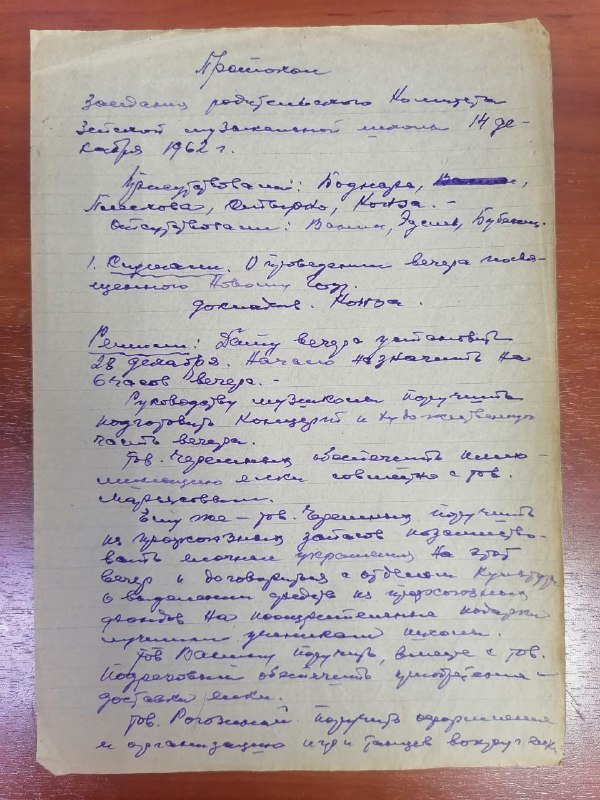 Протокол
Заседания родительского Комитета
Зейской музыкальной школы 14 де-
кабря 1962 г.
Присутствовали: Боднара,
Плиснова, Конза. -
Отсутствовали: Ванин,
1. Слушали. О проведении вечера посвя-
щенного Новому году.
докладыв. Конза.
Решили: Дату вечера установить
28 декабря. Начало назначить на
6 часов вечера. -
Руководству музшколы поручить
подготовить Концерт и художественную
часть вечера.
тов. Черемных обеспечить иллю-
минацию елки совместно с тов.
Ему же - тов. Черемных поручить
из профсоюзных запасов позаимство-
вать елочные украшения на этот
вечер и договориться с отделом Культуры
о выделении средств из профсоюзных
фондов на поощрительные подарки
лучшим ученикам школы.
тов Ванину поручить, вместе с тов.
обеспечить приобретение и
доставку елки.
тов. Рогозиной поручить оформление
и организацию игр и танцев вокруг елк.